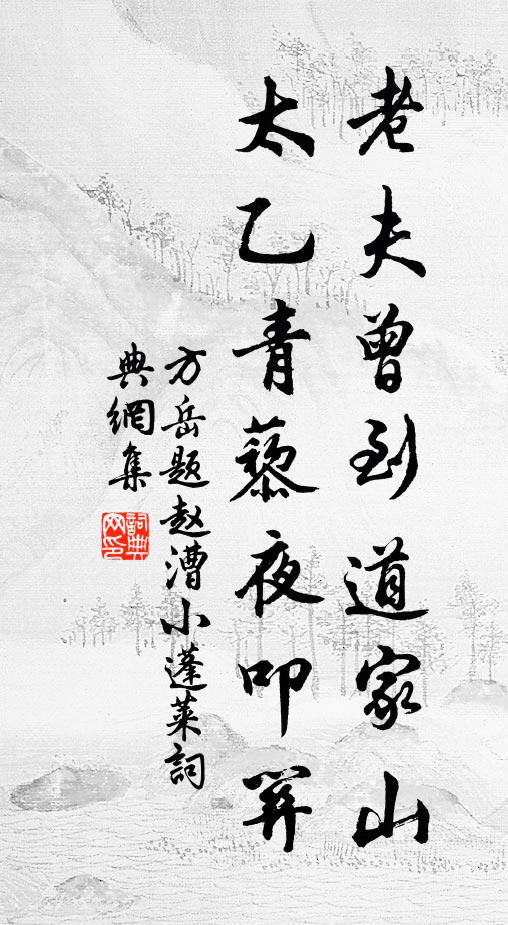 老夫曾到道家山
太乙青藜夜叩關
方岳题赵漕小蓬莱詞
典網集
詞典
网印